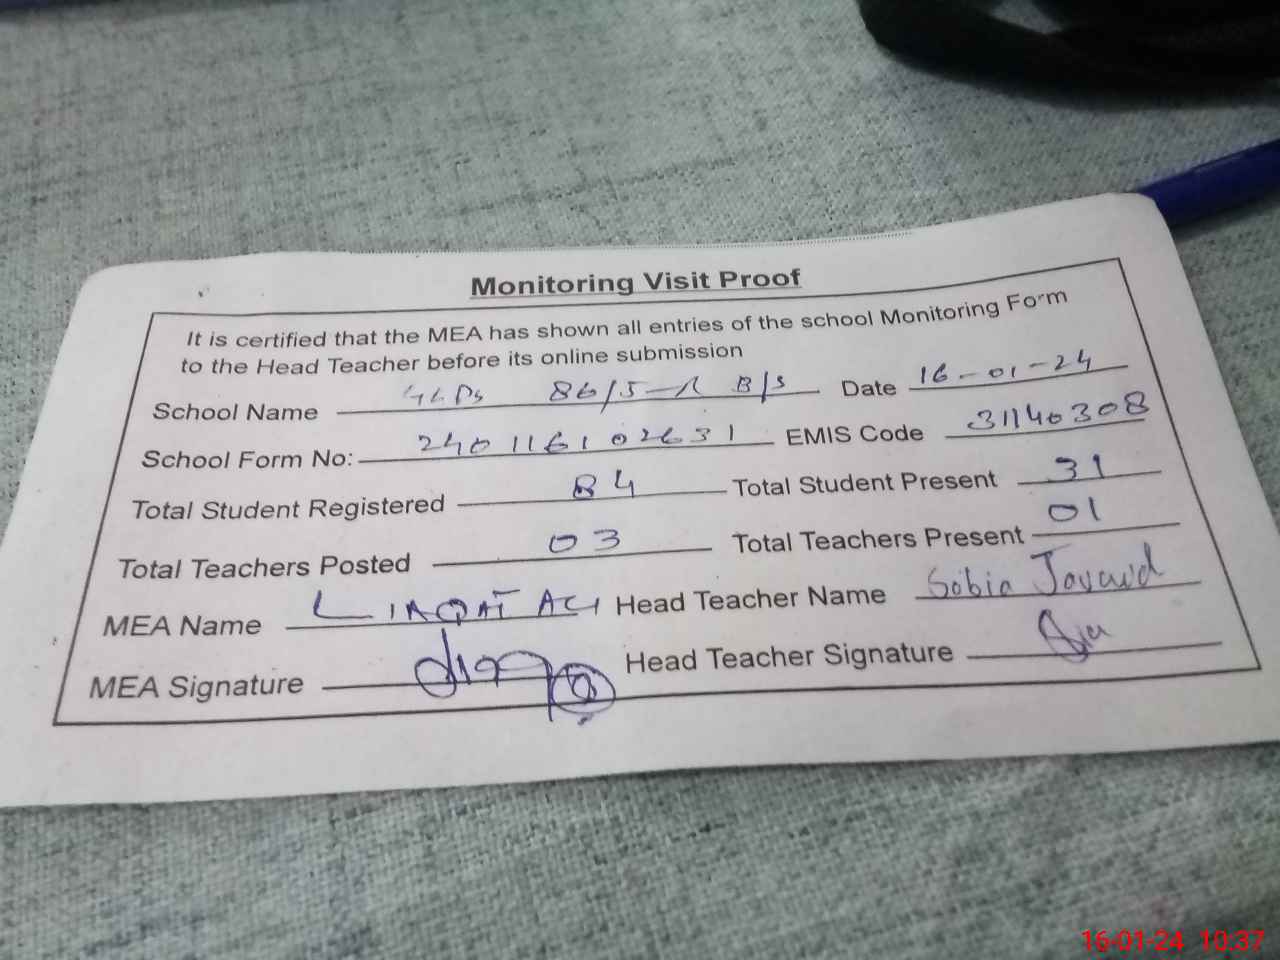 Monitoring Visit Proof
It is certified that the MEA has shown all entries of the school Monitoring Form
to the Head Teacher before its online submission
School Name GGPS 86/5-R B/S Date 16-01-24
School Form No: 240116102631 EMIS Code 31140308
Total Student Registered 84 Total Student Present 31
Total Teachers Posted 03 Total Teachers Present 01
MEA Name LIAQAT ALI Head Teacher Name Sobia Javaid
MEA Signature Head Teacher Signature
16-01-24 10:37